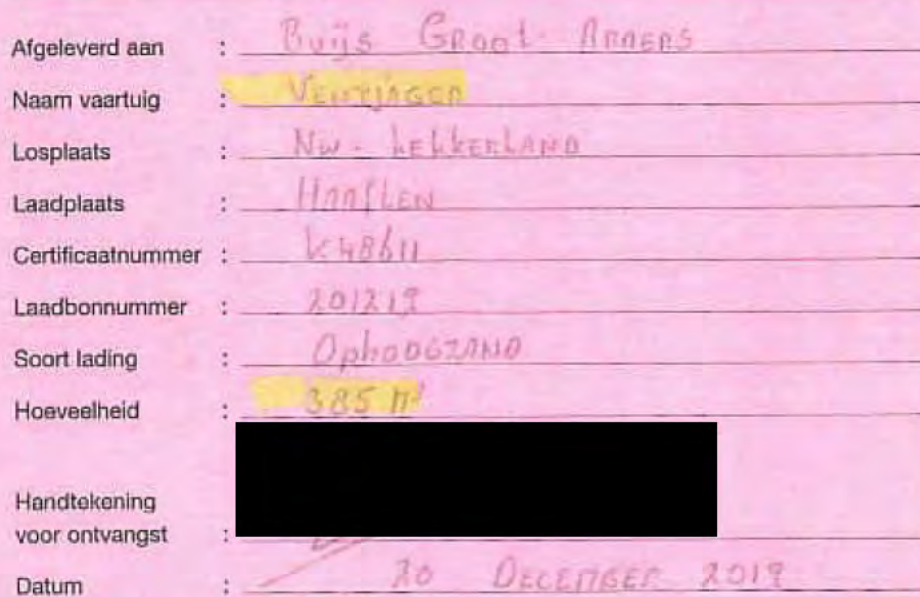 Afgeleverd aan : Buijs Groot-Ammers
Naam vaartuig : Ventjager
Losplaats : Nw-Lekkerland
Laadplaats : Haaften
Certificaatnummer : K48611
Laadbonnummer : 201219
Soort lading : Ophoogzand
Hoeveelheid : 385 m³
Handtekening
voor ontvangst :
Datum : 20 December 2019